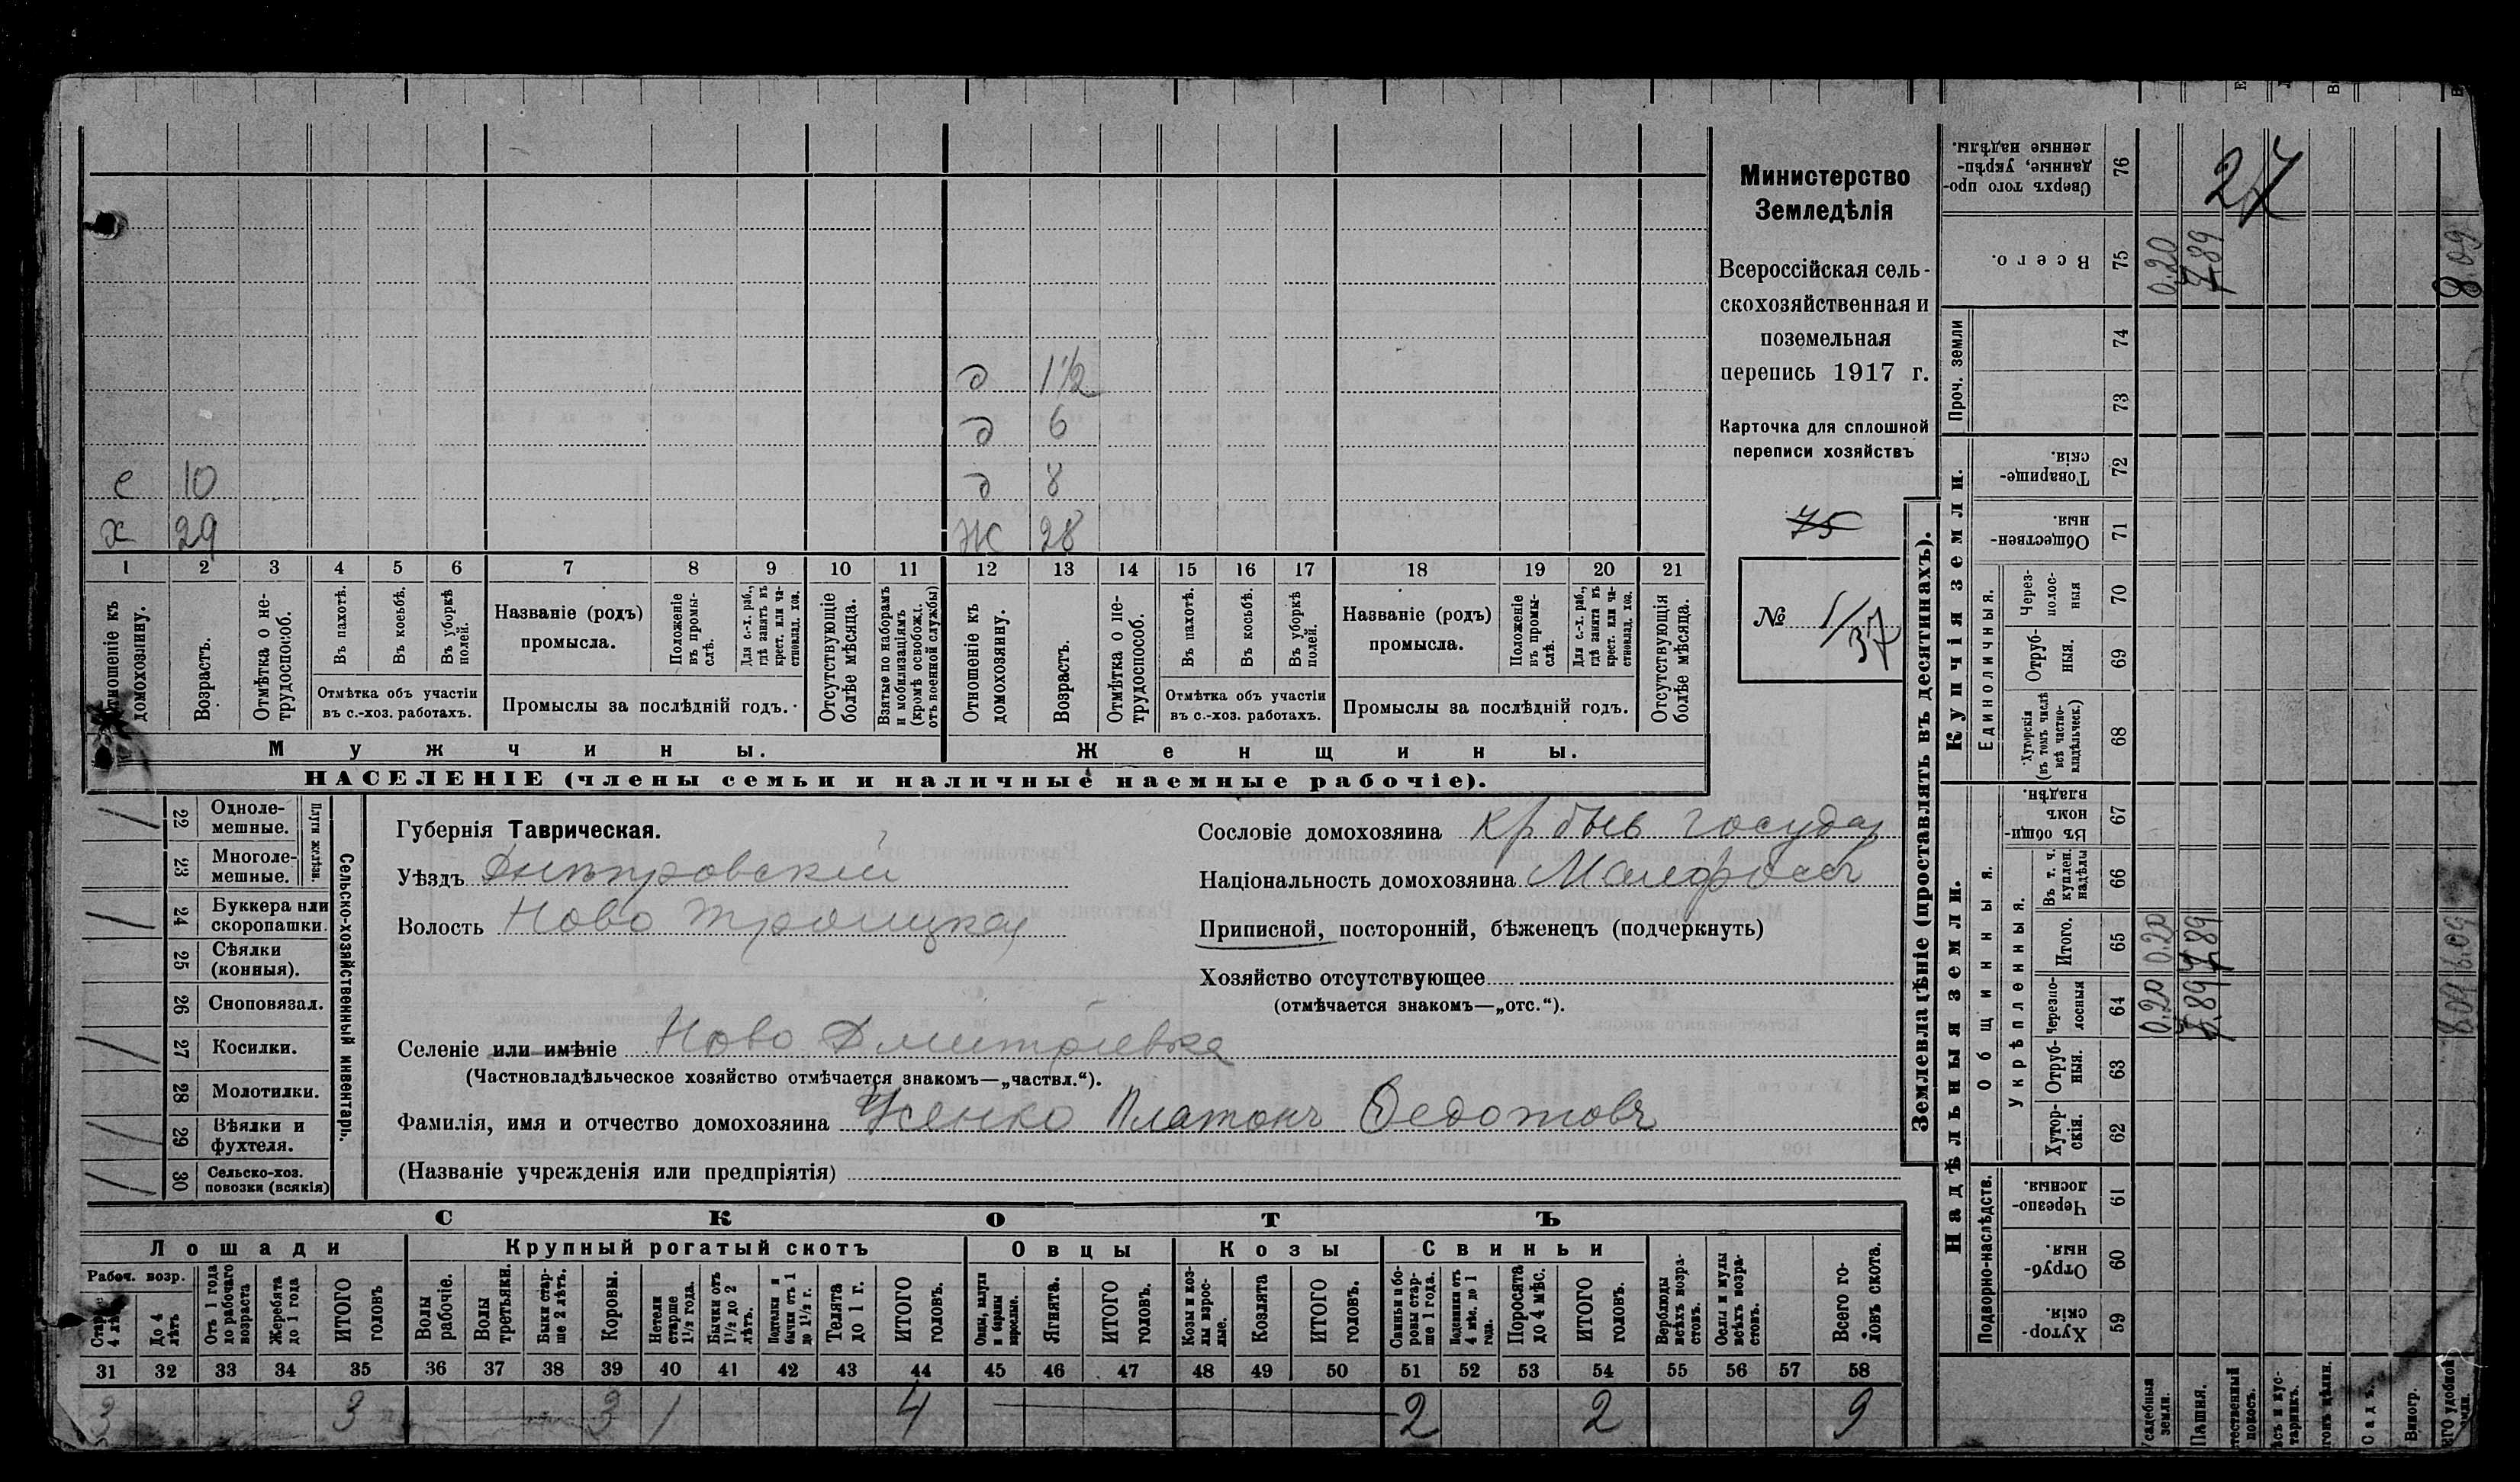 д 1½
д 6
с 10 д 8
х 29 ж 28
1 2 3 4 5 6 7 8 9 10 11 12 13 14 15 16 17 18 19 20 21
Отношеніе къ домохозяину.
Возрастъ.
Отмѣтка о не-трудоспособ.
Въ пахотѣ.
Въ косьбѣ.
Въ уборкѣ полей.
Отмѣтка объ участіи въ с.-хоз. работахъ.
Названіе (родъ) промысла.
Положеніе въ промы-слѣ.
Для с.-х. раб., гдѣ занятъ въ крест. или ча-стновлад. хоз.
Промыслы за послѣдній годъ.
Отсутствующіе болѣе мѣсяца.
Взятые по наборамъ и мобилизаціямъ (кромѣ освобожд. отъ военной службы)
Отношеніе къ домохозяину.
Возрастъ.
Отмѣтка о не-трудоспособ.
Въ пахотѣ.
Въ косьбѣ.
Въ уборкѣ полей.
Отмѣтка объ участіи въ с.-хоз. работахъ.
Названіе (родъ) промысла.
Положеніе въ промы-слѣ.
Для с.-х. раб., гдѣ занята въ крест. или ча-стновлад. хоз.
Промыслы за послѣдній годъ.
Отсутствующія болѣе мѣсяца.
Мужчины. Женщины.
НАСЕЛЕНІЕ (члены семьи и наличные наемные рабочіе).
Министерство
Земледѣлія
Всероссійская сель-
скохозяйственная и
поземельная
перепись 1917 г.
Карточка для сплошной
переписи хозяйствъ
75
№ 1/37
22 Одноле-мешные.
23 Многоле-мешные.
Плуги желѣзн.
24 Буккера или скоропашки.
25 Сѣялки (конныя).
26 Сноповязал.
27 Косилки.
28 Молотилки.
29 Вѣялки и фухтеля.
30 Сельско-хоз. повозки (всякія)
Сельско-хозяйственный инвентарь.
Губернія Таврическая.
Уѣздъ Днѣпровскій
Волость Ново Троицкая
Селеніе или имѣніе Ново Дмитріевка
(Частновладѣльческое хозяйство отмѣчается знакомъ—„частвл.“).
Фамилія, имя и отчество домохозяина Усенко Платонъ Федотовъ
(Названіе учрежденія или предпріятія)
Сословіе домохозяина кр быв государ
Національность домохозяина Малороссъ
Приписной, посторонній, бѣженецъ (подчеркнуть)
Хозяйство отсутствующее
(отмѣчается знакомъ—„отс.“).
СКОТЪ
Лошади Крупный рогатый скотъ Овцы Козы Свиньи
Рабоч. возр.
До 4 лѣтъ
Отъ 1 года до рабочаго возраста
Жеребята до 1 года
ИТОГО головъ
Волы рабочіе.
Волы третьяки.
Быки стар-ше 2 лѣтъ.
Коровы.
Нетели старше 1½ года.
Бычки отъ 1½ до 2 лѣтъ.
Телята до 1 г.
ИТОГО головъ.
Ягнята.
ИТОГО головъ.
Козы и коз-лы взрос-лые.
Козлята
ИТОГО головъ.
Свиньи и бо-ровы стар-ше 1 года.
Поросята до 4 мѣс.
ИТОГО головъ.
Верблюды всѣхъ возра-стовъ.
Ослы и мулы всѣхъ возра-стовъ.
Всего го-ловъ скота.
31 32 33 34 35 36 37 38 39 40 41 42 43 44 45 46 47 48 49 50 51 52 53 54 55 56 57 58
3 3 3 1 4 2 2 9
Землевладѣніе (проставлять въ десятинахъ).
Надѣльныя земли. Купчія земли. Проч. земли
Подворно-наслѣдств. Общинныя. Единоличныя.
Укрѣпленныя.
Сверхъ того про-данные, укрѣп-ленные надѣлы. 76
27
Всего. 75 0.20 7.89 8.09
74
73
Товарище-скія. 72
Обществен-ныя. 71
Через-полос-ныя 70
Отруб-ныя. 69
Хуторскія (въ томъ числѣ всѣ частно-владѣльческ.) 68
Въ общи-номъ владѣн. 67
Въ т. ч. куплен. надѣлы 66
Итого. 65 0.20 7.89 8.09
Черезпо-лосныя 64 0.20 7.89 8.09
Отруб-ныя. 63
Хутор-скія. 62
Черезпо-лосныя. 61
Отруб-ныя. 60
Хутор-скія. 59
Пашня.
Садъ.
Виногр.